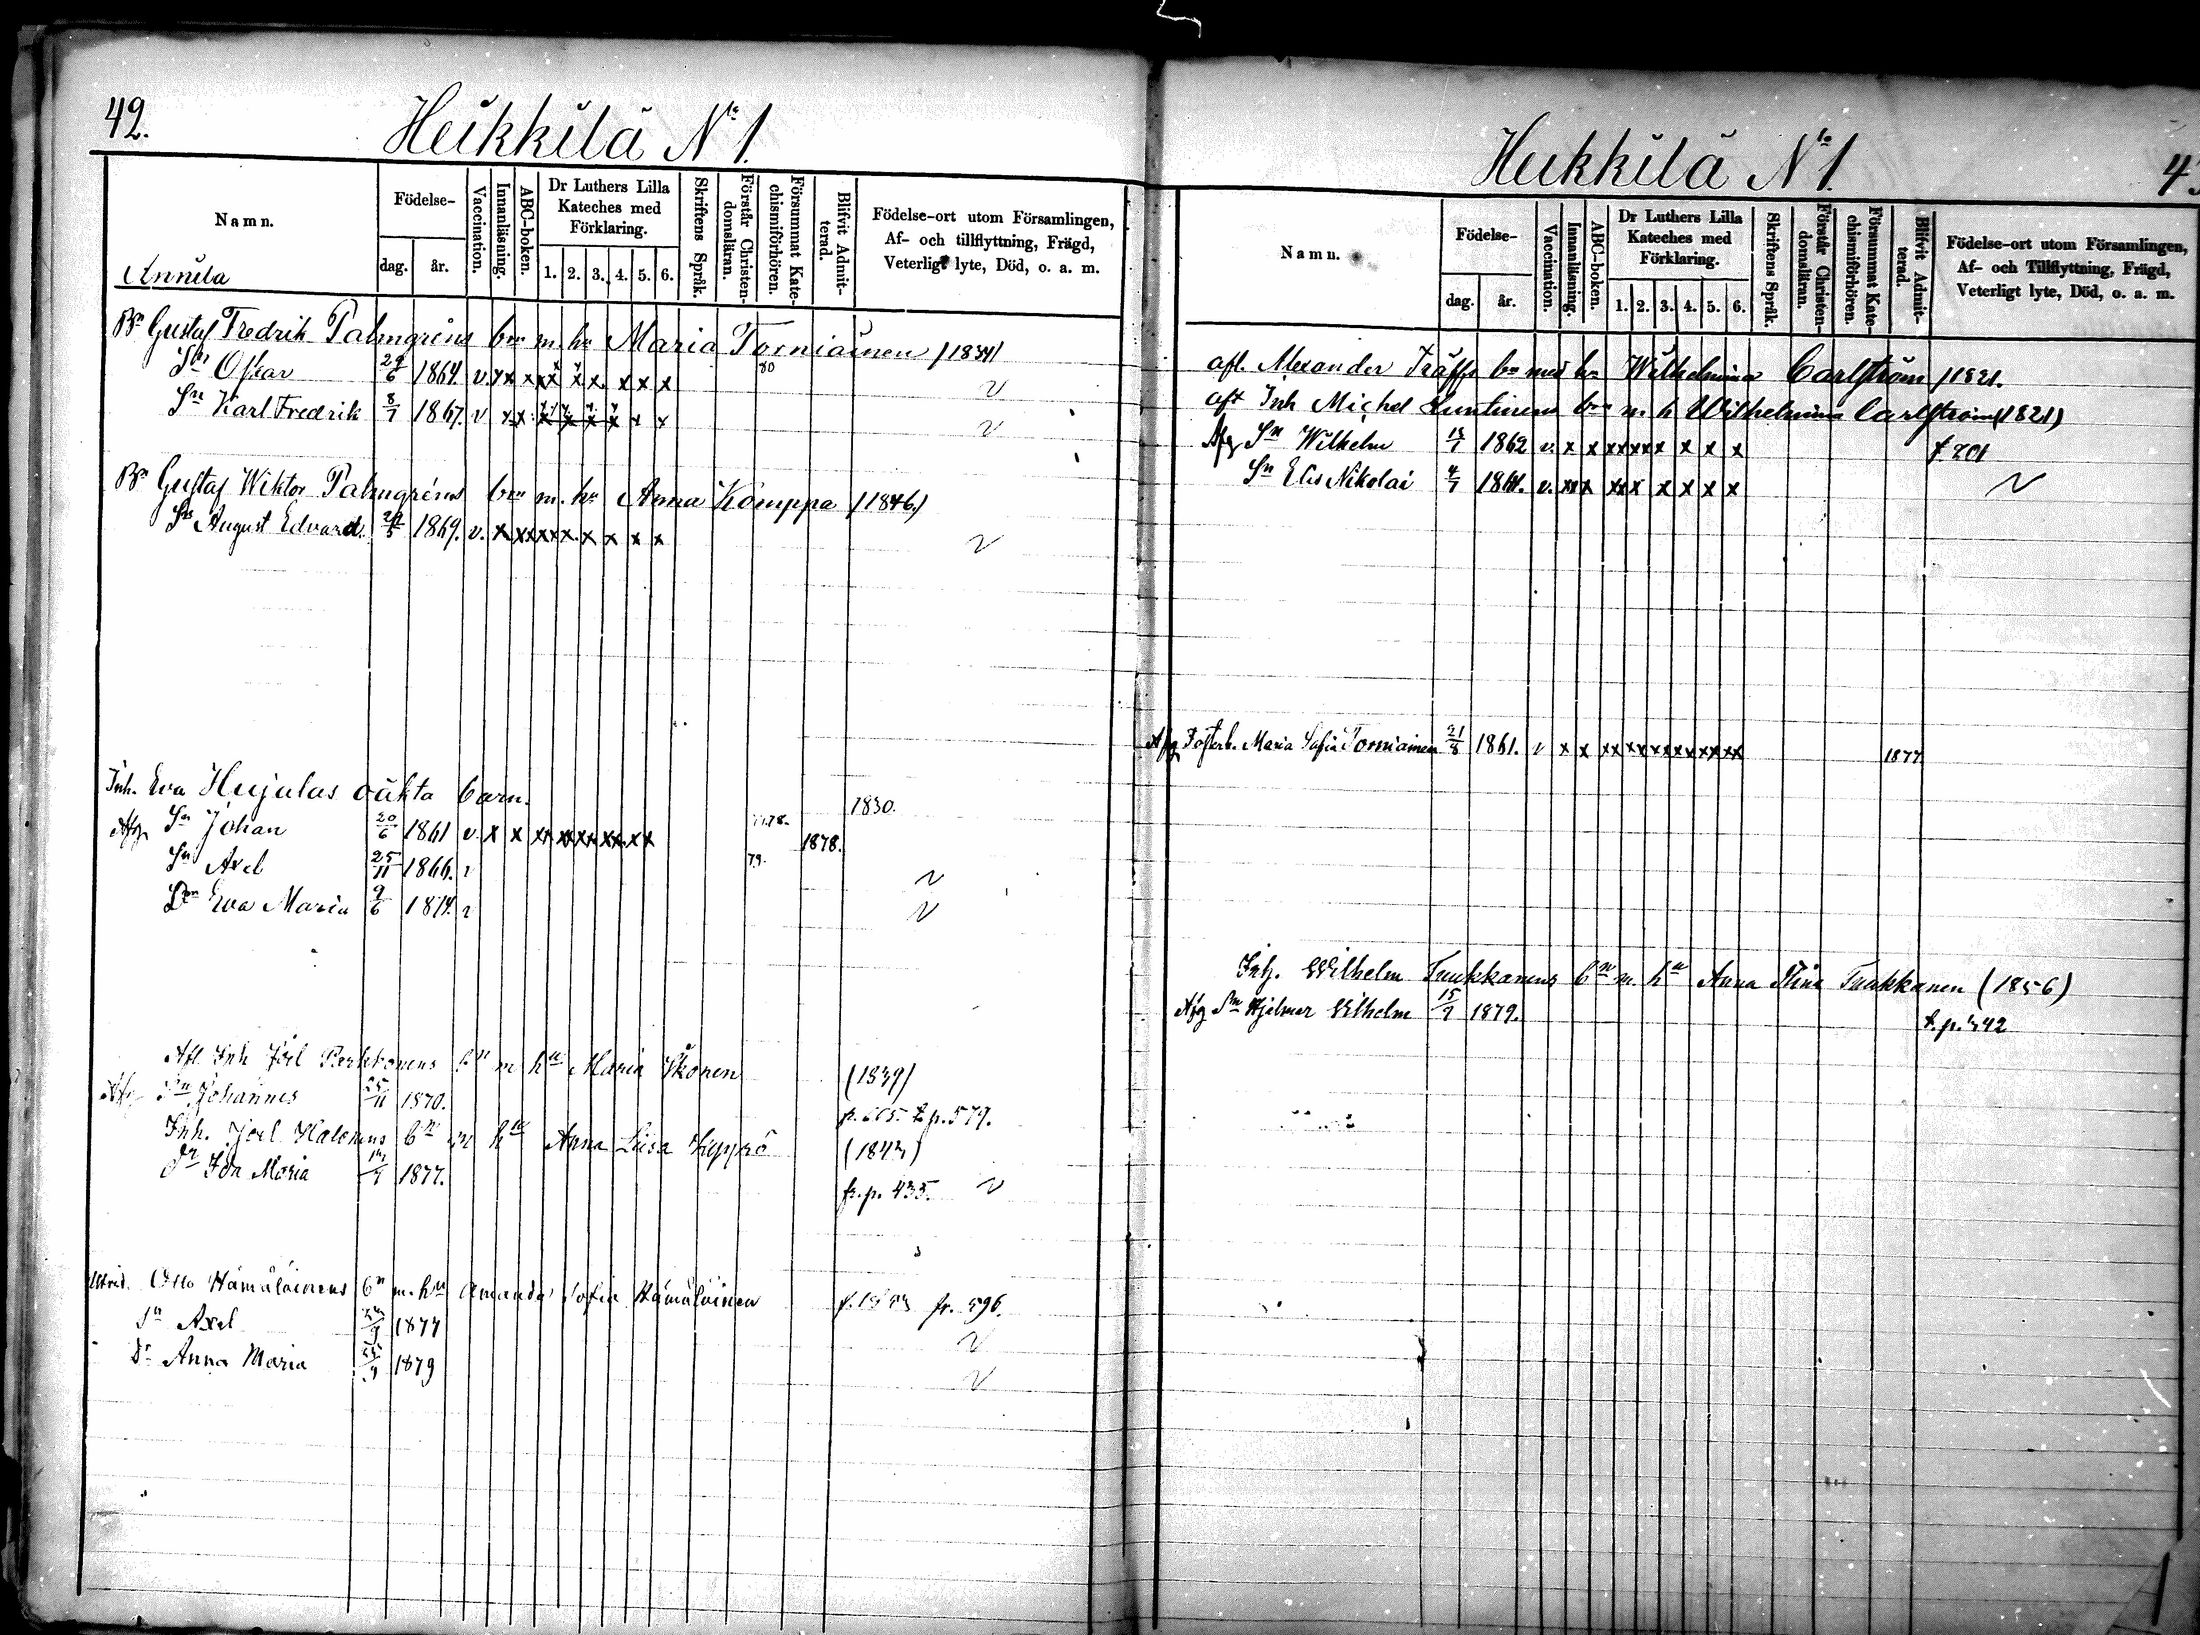 42.
Heikkilä No 1.
Namn.
Födelse-
dag. år.
Vaccination.
Innanläsning.
ABC-boken.
Dr Luthers Lilla Kateches med Förklaring.
1. 2. 3. 4. 5. 6.
Skriftens Språk.
Förstår Christen-domsläran.
Försummat Kate-chismiförhören.
Blifvit Admit-terad.
Födelse-ort utom Församlingen, Af- och tillflyttning, Frägd, Veterligt lyte, Död, o. a. m.
Annila
Bn Gustaf Fredrik Palmgréns bn m. hn Maria Torniainen (1834)
Sn Oskar 29/6 1864. v. x x x x x x x x 80
Sn Karl Fredrik 8/7 1867. v x x x x x x x x
Bn Gustaf Wiktor Palmgréns bn m. hn Anna Komppa (1846)
Sn August Edvard. 1869. v. x x x x x x x x
Inh. Eva Hujalas oäkta barn. 1830.
Afg Sn Johan 20/6 1861 v. x x xx xx xx xx xx 1878.
Sn Axel 25/11 1866. v 79.
Dr Eva Maria 9/6 1874. v
Afl Inh Joel Parkkonens bn m hu Maria Ikonen (1839)
Afg Sn Johannes 25/11 1870. t p. 579.
Inh. Joel bn m hu Anna Lisa
Dr Ida Maria 1877. fr. p. 435.
Otto Hämäläinens bn m. hu Amanda Sofia Hämäläinen fr. 596.
Sn Axel 1877
Dr Anna Maria 1879
Heikkilä No 1.
Namn.
Födelse-
dag. år.
Vaccination.
Innanläsning.
ABC-boken.
Dr Luthers Lilla Kateches med Förklaring.
1. 2. 3. 4. 5. 6.
Skriftens Språk.
Förstår Christen-domsläran.
Försummat Kate-chismiförhören.
Blifvit Admit-terad.
Födelse-ort utom Församlingen, Af- och Tillflyttning, Frägd, Veterligt lyte, Död, o. a. m.
afl. Alexander Träffs bn med hn Wilhelmina Carlström (1821.
afl Inh Michel bn m h Wilhelmina Carlström (1821)
Afg Sn Wilhelm 1862 v. x x xx xx x x x x
Sn Elis Nikolai 4/7 1864. v. xx x xx x x x x x
Afg Fosterb. Maria Sofia Torniainen 21/8 1861. v x x xx xx xx xx xx xx 1877
Inh. Wilhelm Tuukkanens bn m. hu Anna Stina Tuukkanen (1856)
Afg Sn Hjalmar Vilhelm 15/7 1879. t. p. 442